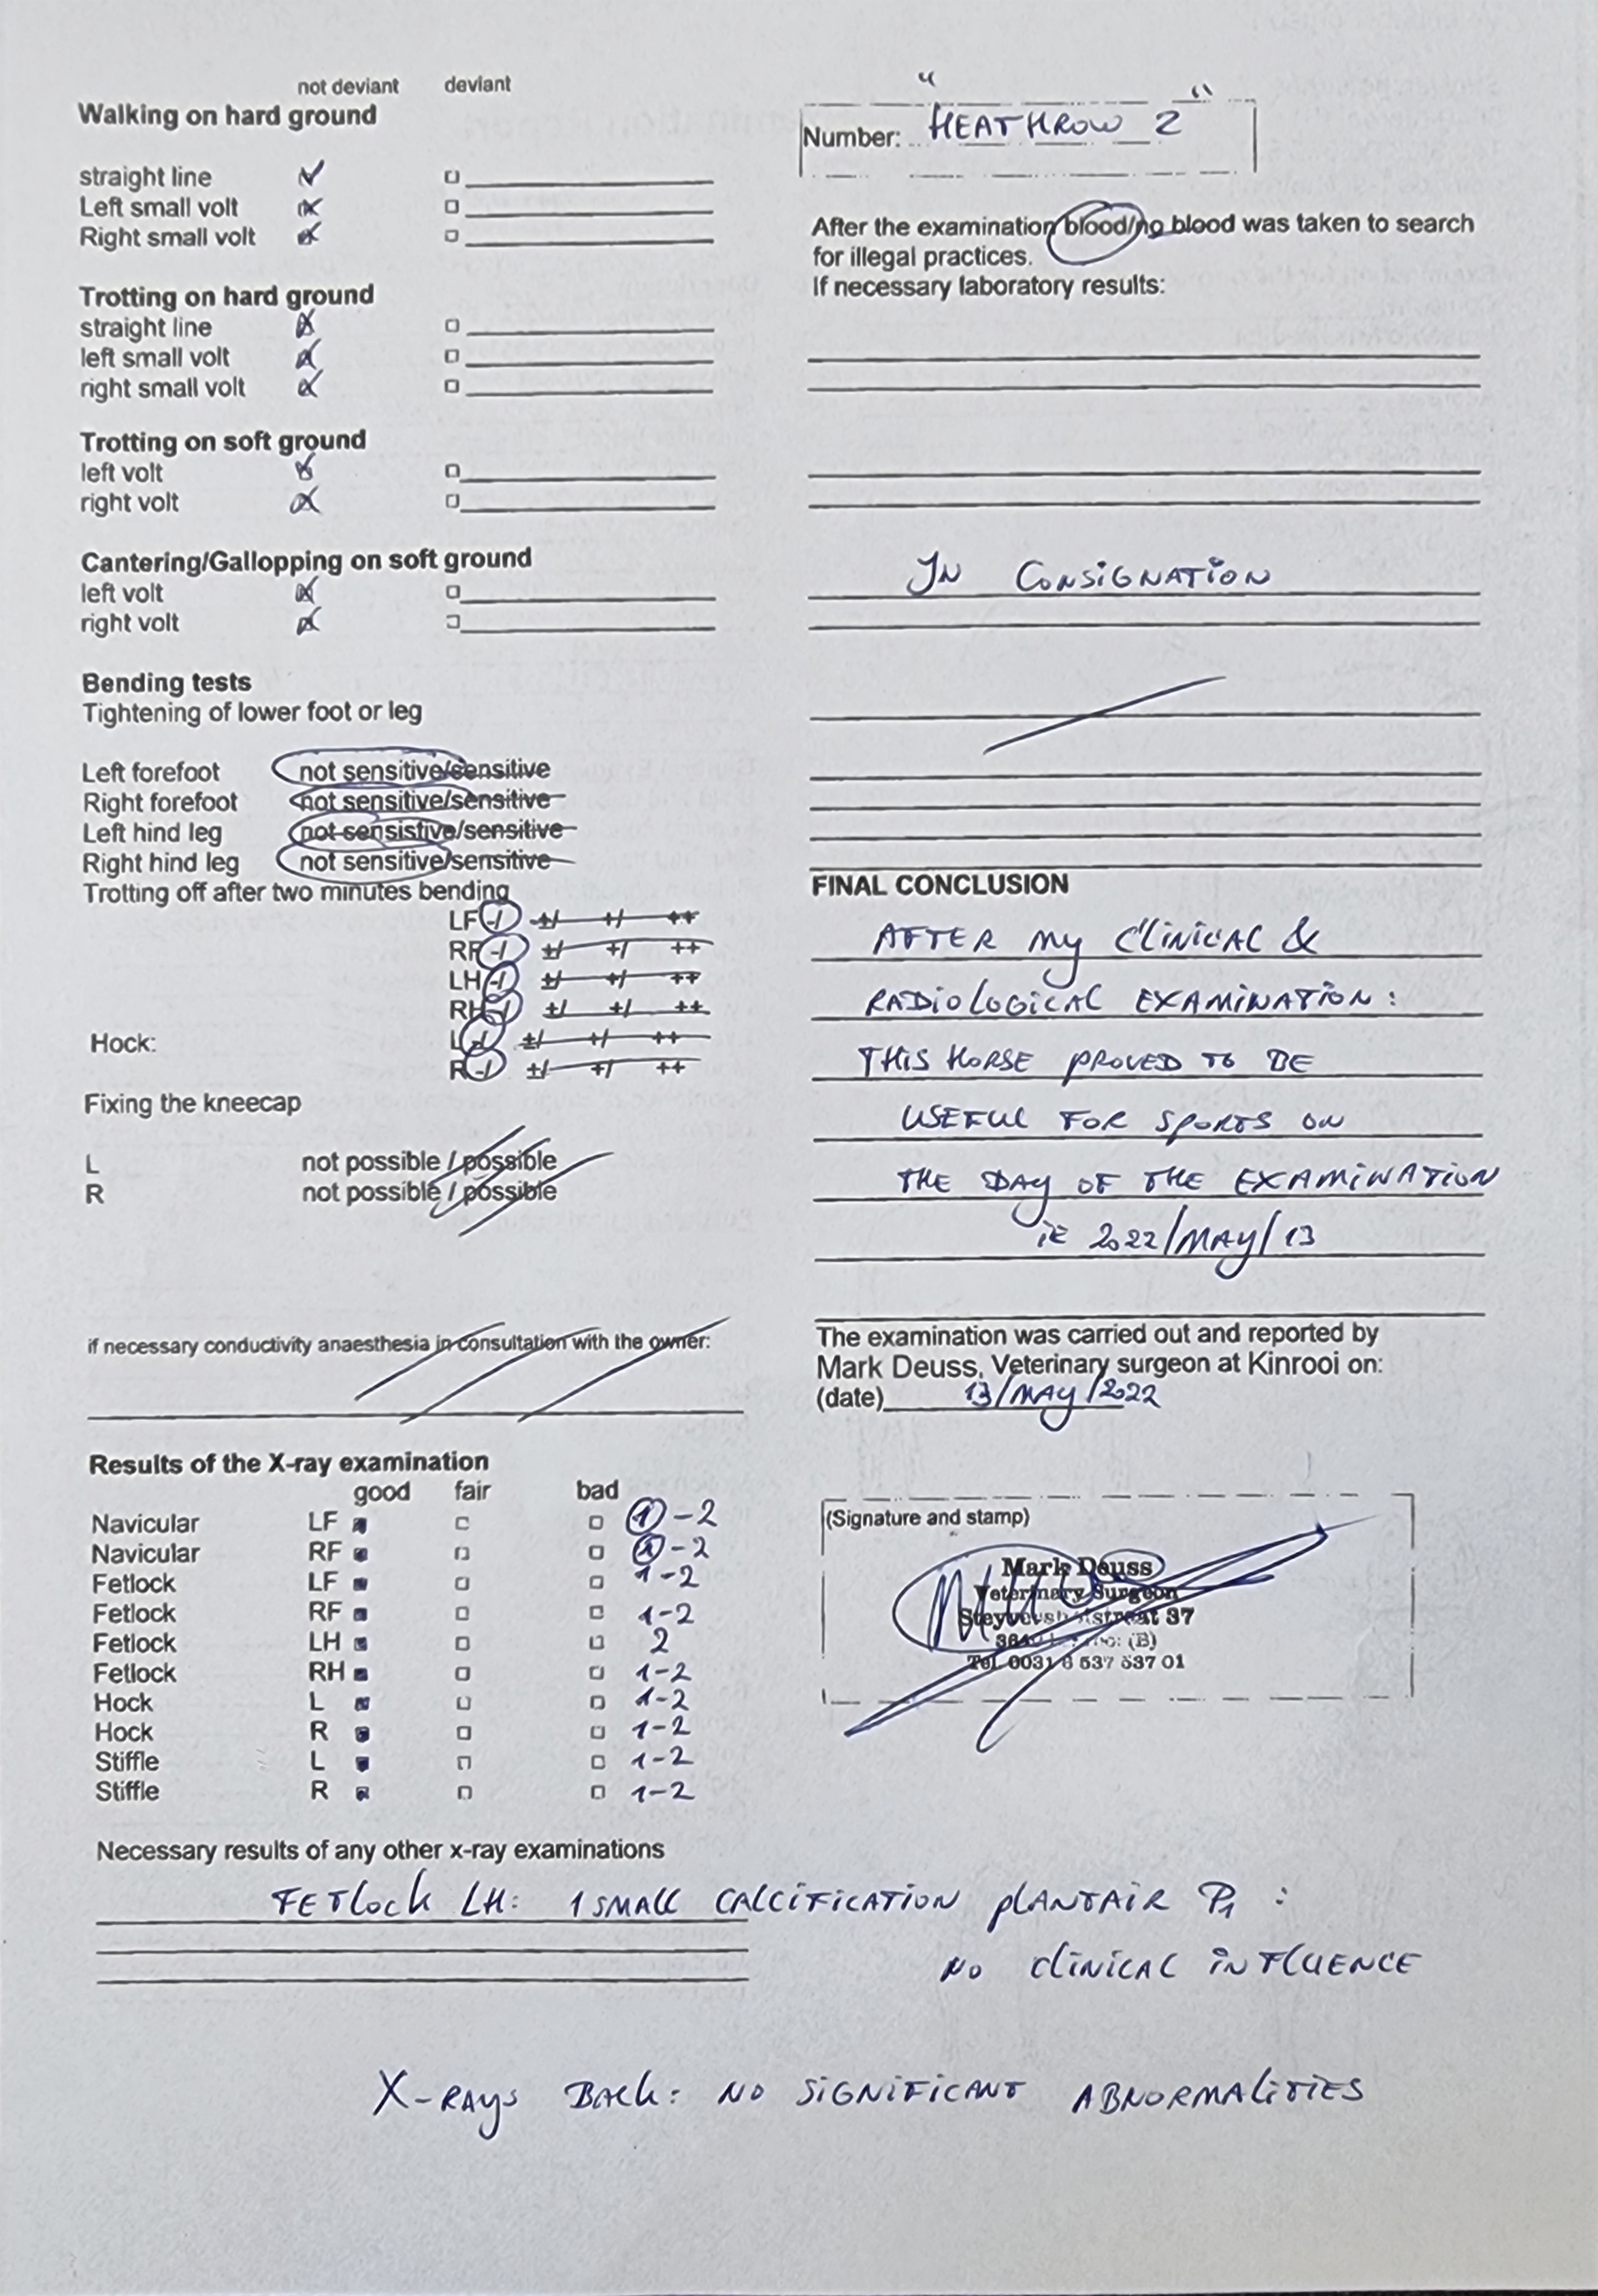 not deviant deviant
Walking on hard ground
straight line
Left small volt
Right small volt
Trotting on hard ground
straight line
left small volt
right small volt
Trotting on soft ground
left volt
right volt
Cantering/Gallopping on soft ground
left volt
right volt
Bending tests
Tightening of lower foot or leg
Left forefoot not sensitive/sensitive
Right forefoot not sensitive/sensitive
Left hind leg not sensistive/sensitive
Right hind leg not sensitive/sensitive
Trotting off after two minutes bending
LF -/ ±/ +/ ++
RF -/ ±/ +/ ++
LH -/ ±/ +/ ++
RH -/ ±/ +/ ++
Hock: L -/ ±/ +/ ++
R -/ ±/ +/ ++
Fixing the kneecap
L not possible / possible
R not possible / possible
if necessary conductivity anaesthesia in consultation with the owner:
Results of the X-ray examination
good fair bad
Navicular LF 1-2
Navicular RF 1-2
Fetlock LF 1-2
Fetlock RF 1-2
Fetlock LH 2
Fetlock RH 1-2
Hock L 1-2
Hock R 1-2
Stiffle L 1-2
Stiffle R 1-2
Necessary results of any other x-ray examinations
FETLOCK LH: 1 SMALL CALCIFICATION PLANTAIR P1 :
NO CLINICAL INFLUENCE
X-RAYS BACK: NO SIGNIFICANT ABNORMALITIES
Number: "HEATHROW 2"
After the examination blood/no blood was taken to search
for illegal practices.
If necessary laboratory results:
IN CONSIGNATION
FINAL CONCLUSION
AFTER MY CLINICAL &
RADIOLOGICAL EXAMINATION:
THIS HORSE PROVED TO BE
USEFUL FOR SPORTS ON
THE DAY OF THE EXAMINATION
IE 2022/MAY/13
The examination was carried out and reported by
Mark Deuss, Veterinary surgeon at Kinrooi on:
(date) 13/MAY/2022
(Signature and stamp)
Mark Deuss
Veterinary Surgeon
37
(B)
Tel. 0031 6 537 537 01